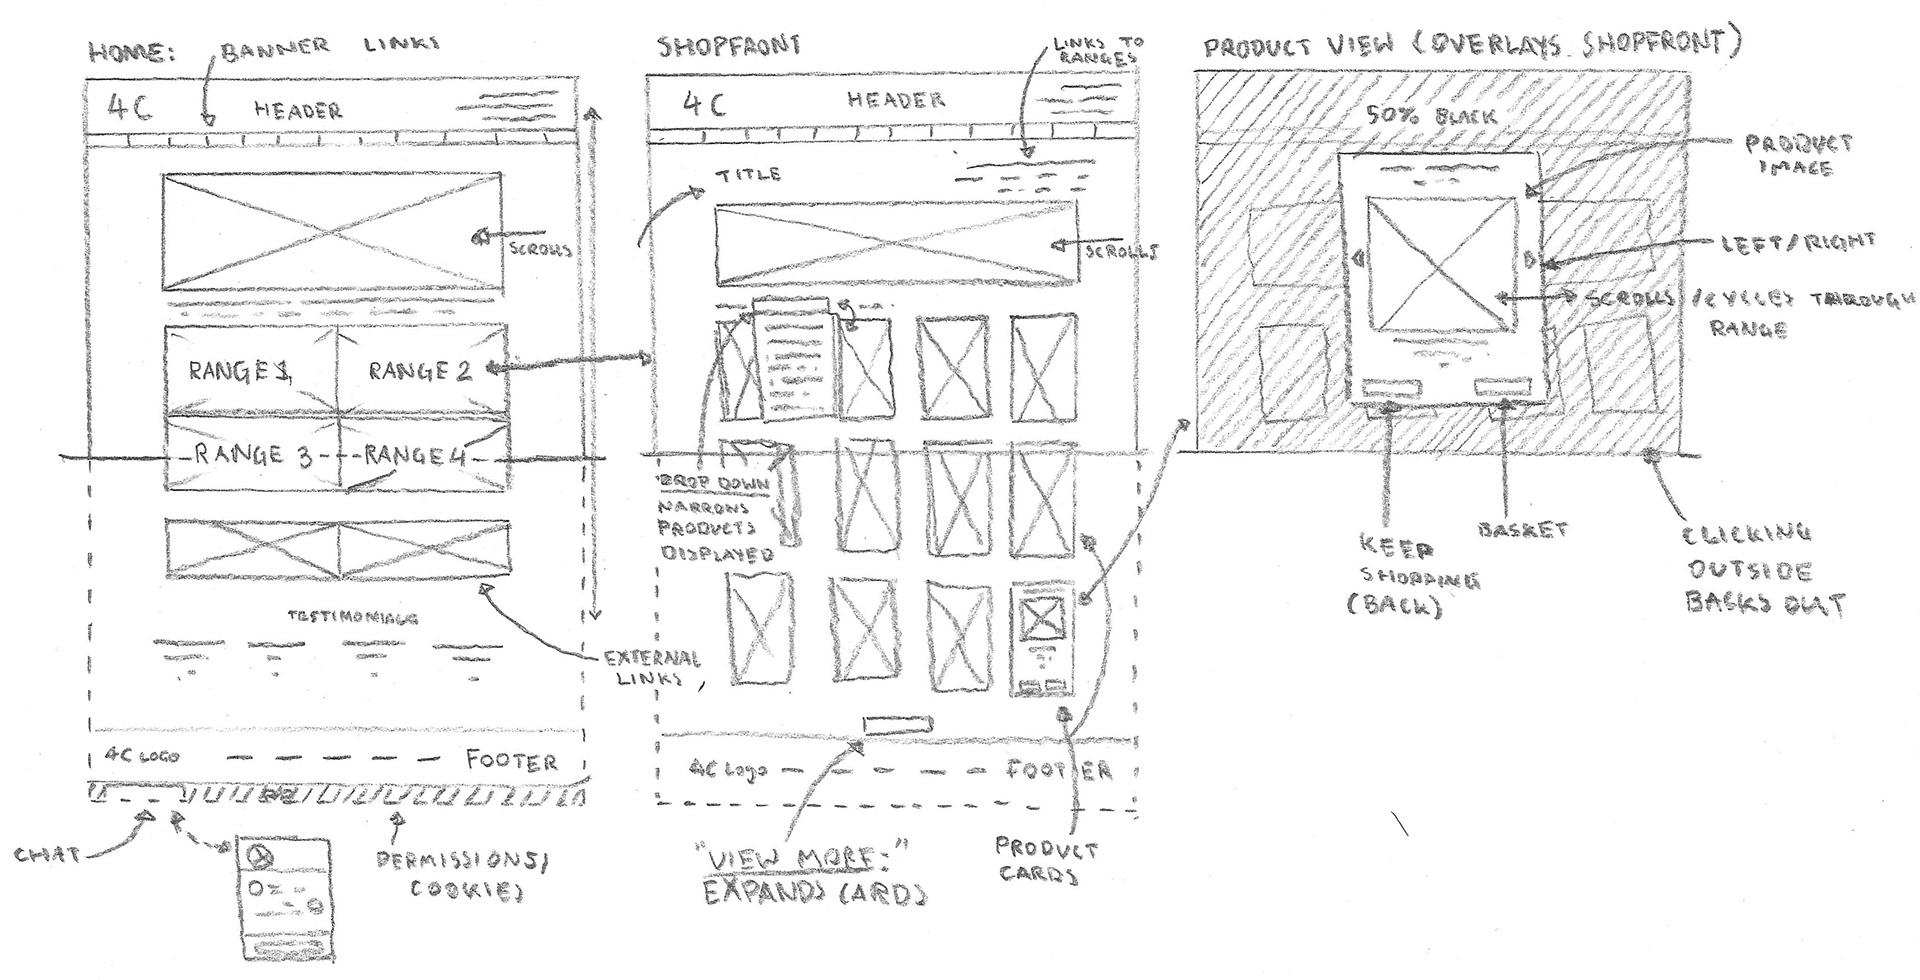 HOME: BANNER LINKS
4C HEADER
SCROLLS
RANGE 1
RANGE 2
RANGE 3
RANGE 4
TESTIMONIALS
EXTERNAL
LINKS
4C LOGO
FOOTER
CHAT
PERMISSIONS/
COOKIES
SHOPFRONT
LINKS TO
RANGES
4C HEADER
TITLE
SCROLLS
DROP DOWN
NARROWS
PRODUCTS
DISPLAYED
4C Logo
FOOTER
"VIEW MORE:"
EXPANDS CARDS
PRODUCT
CARDS
PRODUCT VIEW (OVERLAYS SHOPFRONT)
50% BLACK
PRODUCT
IMAGE
LEFT/RIGHT
SCROLLS/CYCLES THROUGH
RANGE
KEEP
SHOPPING
(BACK)
BASKET
CLICKING
OUTSIDE
BACKS OUT